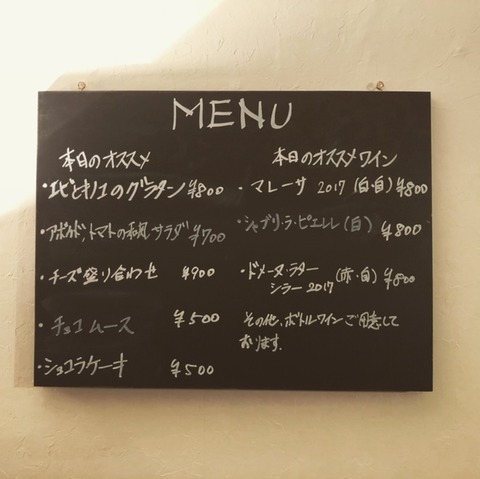 MENU
本日のオススメ
・エビときのこのグラタン ¥800
・アボカド、トマトの和風サラダ ¥700
・チーズ盛り合わせ ¥900
・チョコムース ¥500
・ショコラケーキ ¥500
本日のオススメワイン
・マレーサ 2017 (白・白) ¥800
・シャブリ・ラ・ピエレレ (白) ¥800
・ドメーヌ・ラター
シラー 2017 (赤・白) ¥800
その他、ボトルワインご用意して
おります.